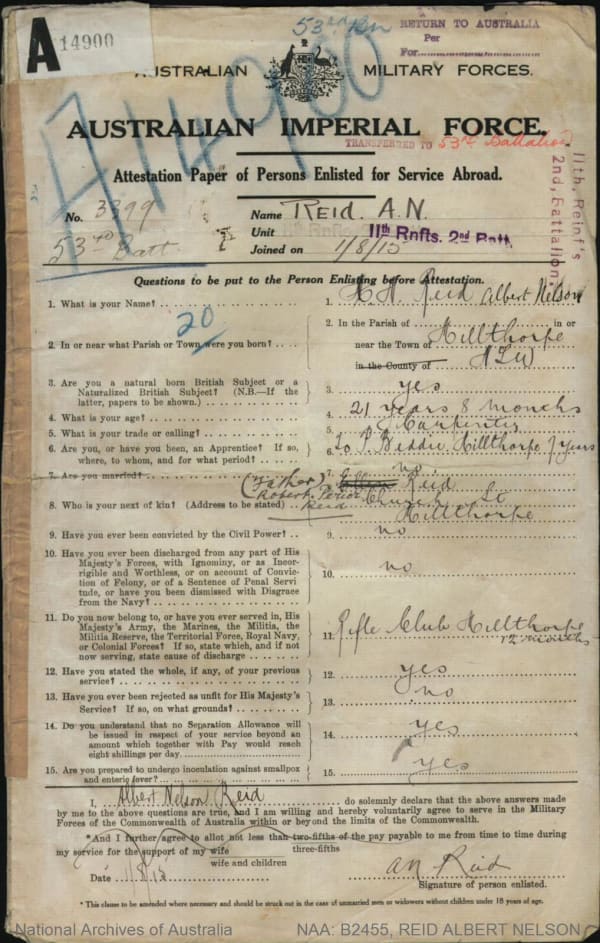 A 14900
53rd Bn
RETURN TO AUSTRALIA
Per
For
AUSTRALIAN MILITARY FORCES.
AUSTRALIAN IMPERIAL FORCE.
TRANSFERRED TO 53rd Battalion
11th, Reinf's
2nd, Battalion
Attestation Paper of Persons Enlisted for Service Abroad.
No. 3399 Name REID. A.N.
53rd Batt Unit 11th Rnfts. 2nd Batt.
Joined on 1/8/15
Questions to be put to the Person Enlisting before Attestation.
1. What is your Name? 1. Reid Albert Nelson
20
2. In or near what Parish or Town were you born? 2. In the Parish of in or
near the Town of Millthorpe
in the County of NSW
3. Are you a natural born British Subject or a
Naturalized British Subject? (N.B.—If the
latter, papers to be shown.) 3. yes
4. What is your age? 4. 21 years 8 months
5. What is your trade or calling? 5. Carpenter
6. Are you, or have you been, an Apprentice? If so,
where, to whom, and for what period? 6. To Millthorpe years
7. Are you married? 7. no
(Father) Reid
Robert
8. Who is your next of kin? (Address to be stated) Reid 8. Church St
Millthorpe
9. Have you ever been convicted by the Civil Power? 9. no
10. Have you ever been discharged from any part of His
Majesty's Forces, with Ignominy, or as Incor-
rigible and Worthless, or on account of Convic-
tion of Felony, or of a Sentence of Penal Servi
tude, or have you been dismissed with Disgrace
from the Navy? 10. no
11. Do you now belong to, or have you ever served in, His
Majesty's Army, the Marines, the Militia, the
Militia Reserve, the Territorial Force, Royal Navy,
or Colonial Forces? If so, state which, and if not
now serving, state cause of discharge 11. Rifle Club Millthorpe
12 months
12. Have you stated the whole, if any, of your previous
service? 12. yes
13. Have you ever been rejected as unfit for His Majesty's
Service? If so, on what grounds? 13. no
14. Do you understand that no Separation Allowance will
be issued in respect of your service beyond an
amount which together with Pay would reach
eight shillings per day. 14. yes
15. Are you prepared to undergo inoculation against smallpox
and enteric fever? 15. yes
I, Albert Nelson Reid do solemnly declare that the above answers made
by me to the above questions are true, and I am willing and hereby voluntarily agree to serve in the Military
Forces of the Commonwealth of Australia within or beyond the limits of the Commonwealth.
*And I further agree to allot not less than two-fifths of the pay payable to me from time to time during
three-fifths
my service for the support of my wife
wife and children
Date 1/8/15 AN Reid
Signature of person enlisted.
* This clause to be amended where necessary and should be struck out in the case of unmarried men or widowers without children under 18 years of age.
National Archives of Australia NAA: B2455, REID ALBERT NELSON